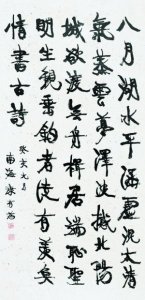 八月湖水平涵虛混太清
氣蒸雲夢澤波撼岳陽
城欲渡無舟楫居端耻聖
明坐觀垂釣者徒有羡魚
情書古詩
癸亥元月
南海